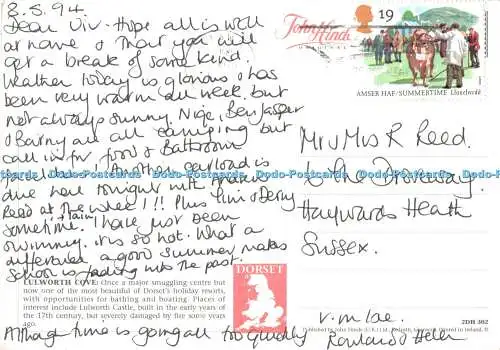 8.5.94
Dear Viv. Hope all is well
at home & that you will
get a break of some kind.
Weather today is glorious & has
been very warm all week but
not always sunny. Nige, Ben, Jasper
& Barny are all camping but
call in for food & Bathroom
facilities! Another carload is
due here tonight with
Reed at the wheel!!! Plus &
sometime. I have just been
swimming it is so hot. What a
difference a good summer makes
School is fading into the past.
Although time is going all too quickly
LULWORTH COVE: Once a major smuggling centre but
now one of the most beautiful of Dorset's holiday resorts,
with opportunities for bathing and boating. Places of
interest include Lulworth Castle, built in the early years of
the 17th century, but severely damaged by fire some years
ago.
DORSET
John Hinde
ORIGINAL
19
AMSER HAF/SUMMERTIME Llanelwedd
Mr & Mrs R Reed.
The Droveway.
Haywards Heath
Sussex.
2DR 302
Published by John Hinde (U.K.) Ltd.
Dodo-Postcards Dodo-Postcards Dodo-Postcards Dodo-Postcards Dodo-Postcards